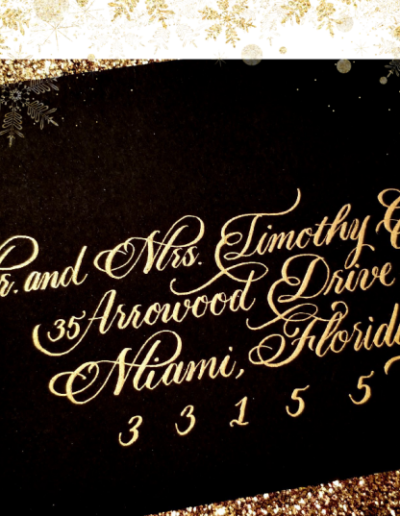 r. and Mrs. Timothy C
35 Arrowood Drive
Miami, Florida
3 3 1 5 5